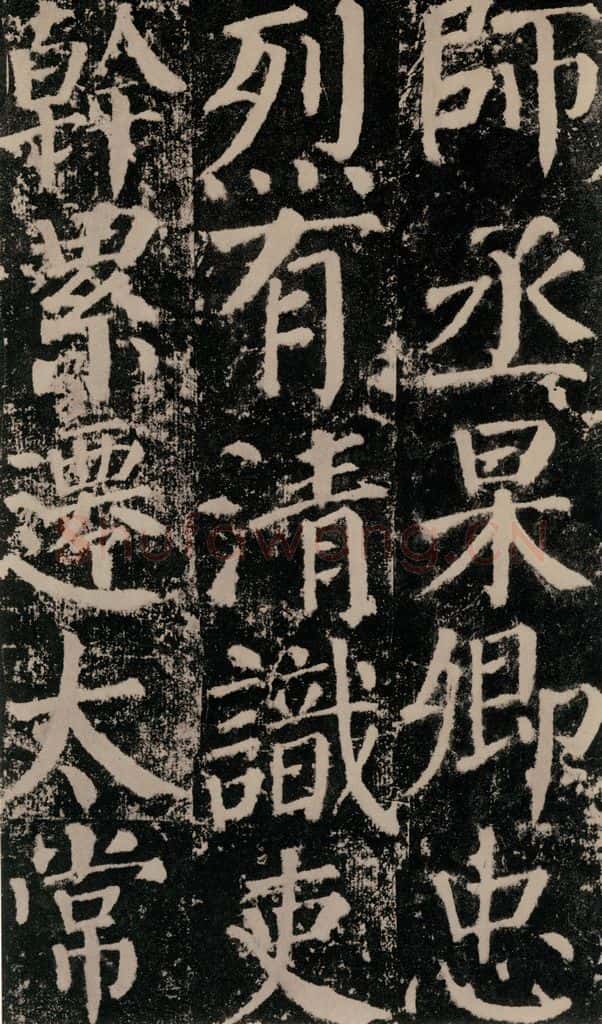 師丞杲卿忠
烈有清識吏
幹累遷太常
shufawang.CN